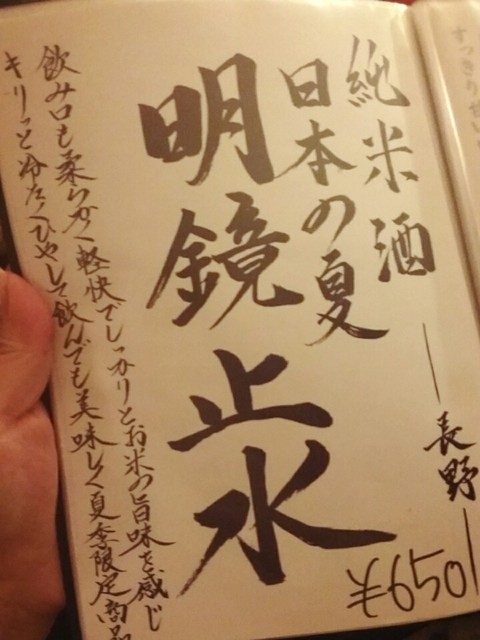 純米酒
―長野―
¥650
日本の夏
明鏡止水
飲み口も柔らかく軽快でしっかりとお米の旨味を感じ
キリっと冷たくひやして飲んでも美味しく夏季限定商品
すっきり甘い